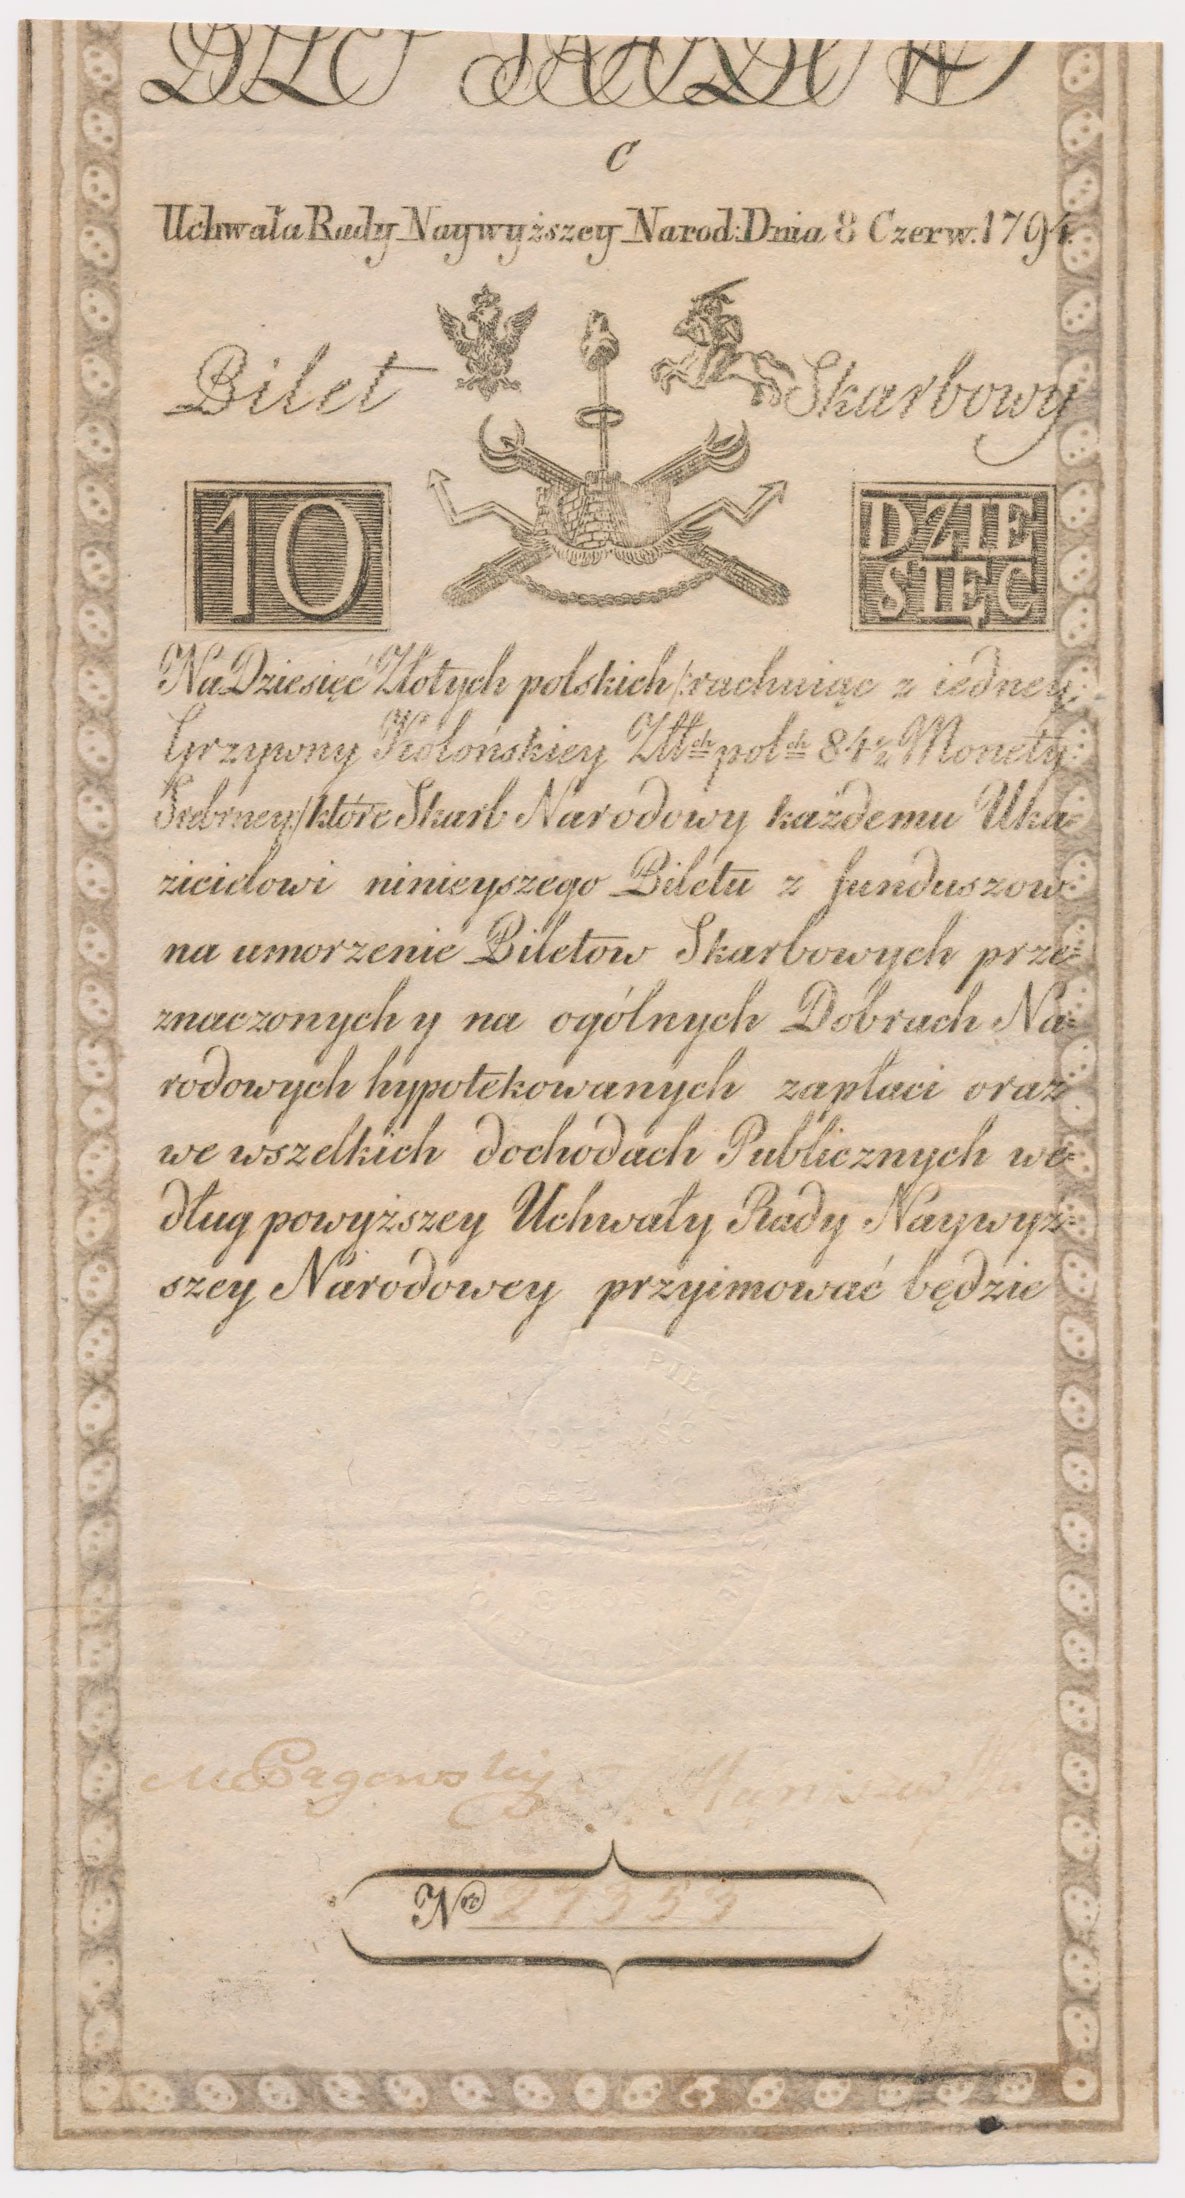 C
Uchwała Rady Naywyższey Narod: Dnia 8 Czerw. 1794.
Bilet Skarbowy
10 DZIE
SIĘĆ
Na Dziesięć Złotych polskich /:rachuiąc z iedney
Grzywny Kolońskiey Złł:ch pol:ch 84½ Monety
Srebrney:/ które Skarb Narodowy każdemu Uka=
zicielowi ninieyszego Biletu z funduszow
na umorzenie Biletow Skarbowych prze=
znaczonych y na ogólnych Dobrach Na=
rodowych hypotekowanych zapłaci oraz
we wszelkich dochodach Publicznych we=
dług powyższey Uchwały Rady Naywyż=
szey Narodowey przyimować będzie
Nro 27353